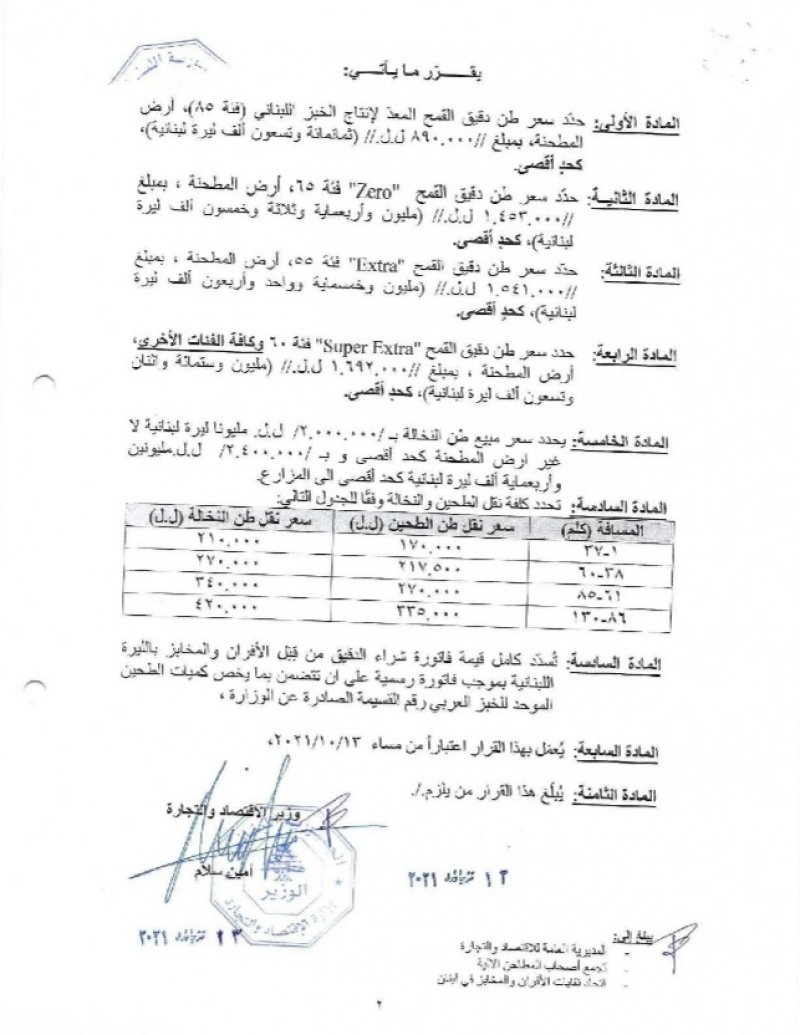 يقـــرّر ما يـأتـــي:
المادة الأولى: حدّد سعر طن دقيق القمح المعدّ لإنتاج الخبز اللبناني (فئة ٨٥)، أرض
المطحنة، بمبلغ //٨٩٠.٠٠٠ ل.ل.// (ثمانمائة وتسعون ألف ليرة لبنانية)،
كحدٍ أقصى.
المادة الثانية: حدّد سعر طن دقيق القمح "Zero" فئة ٦٥، أرض المطحنة ، بمبلغ
//١.٤٥٣.٠٠٠ ل.ل.// (مليون وأربعماية وثلاثة وخمسون ألف ليرة
لبنانية)، كحدٍ أقصى.
المادة الثالثة: حدّد سعر طن دقيق القمح "Extra" فئة ٥٥، أرض المطحنة ، بمبلغ
//١.٥٤١.٠٠٠ ل.ل.// (مليون وخمسماية وواحد وأربعون ألف ليرة
لبنانية)، كحدٍ أقصى.
المادة الرابعة: حدد سعر طن دقيق القمح "Super Extra" فئة ٦٠ وكافة الفئات الأخرى،
أرض المطحنة ، بمبلغ //١.٦٩٢.٠٠٠ ل.ل.// (مليون وستمائة واثنان
وتسعون ألف ليرة لبنانية)، كحدٍ أقصى.
المادة الخامسة: يحدد سعر مبيع طن النخالة بـ /٢.٠٠٠.٠٠٠/ ل.ل. مليونا ليرة لبنانية لا
غير ارض المطحنة كحد أقصى و بـ /٢.٤٠٠.٠٠٠/ ل.ل.مليونين
وأربعماية ألف ليرة لبنانية كحد أقصى الى المزارع.
المادة السادسة: تحدد كلفة نقل الطحين والنخالة وفقًا للجدول التالي:
المسافة (كلم) سعر نقل طن الطحين (ل.ل) سعر نقل طن النخالة (ل.ل)
١-٣٧ ١٧٠.٠٠٠ ٢١٠.٠٠٠
٣٨-٦٠ ٢١٧.٥٠٠ ٢٧٠.٠٠٠
٦١-٨٥ ٢٧٠.٠٠٠ ٣٤٠.٠٠٠
٨٦-١٣٠ ٣٣٥.٠٠٠ ٤٢٠.٠٠٠
المادة السادسة: تُسدّد كامل قيمة فاتورة شراء الدقيق من قِبل الأفران والمخابز بالليرة
اللبنانية بموجب فاتورة رسمية على ان تتضمن بما يخص كميات الطحين
الموحد للخبز العربي رقم القسيمة الصادرة عن الوزارة ،
المادة السابعة: يُعمل بهذا القرار اعتباراً من مساء ٢٠٢١/١٠/١٣،
المادة الثامنة: يُبلّغ هذا القرار من يلزم./.
وزير الأقتصاد والتجارة
أمين سلام
الوزير
وزارة الإقتصاد والتجارة
١٣ تشرين الأول ٢٠٢١
١٣ تشرين الأول ٢٠٢١
يبلغ إلى:
- المديرية العامة للاقتصاد والتجارة
- تجمع أصحاب المطاحن الآلية
- اتحاد نقابات الأفران والمخابز في لبنان
٢